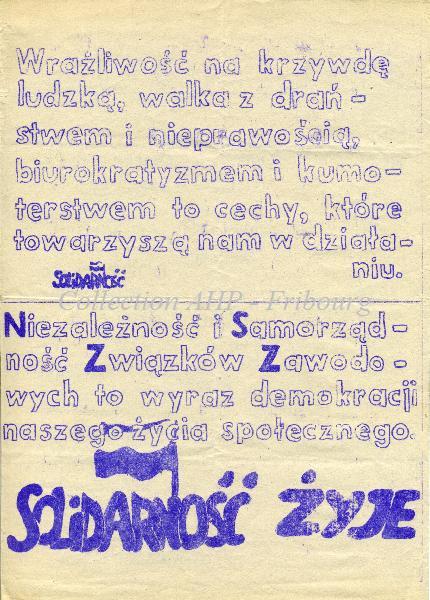 Wrażliwość na krzywdę
ludzką, walka z drań-
stwem i nieprawością,
biurokratyzmem i kumo-
terstwem to cechy, które
towarzyszą nam w działa-
niu.
SOLIDARNOŚĆ
Collection AHP - Fribourg
Niezależność i Samorząd-
ność Związków Zawodo-
wych to wyraz demokracji
naszego życia społecznego.
SOLIDARNOŚĆ ŻYJE